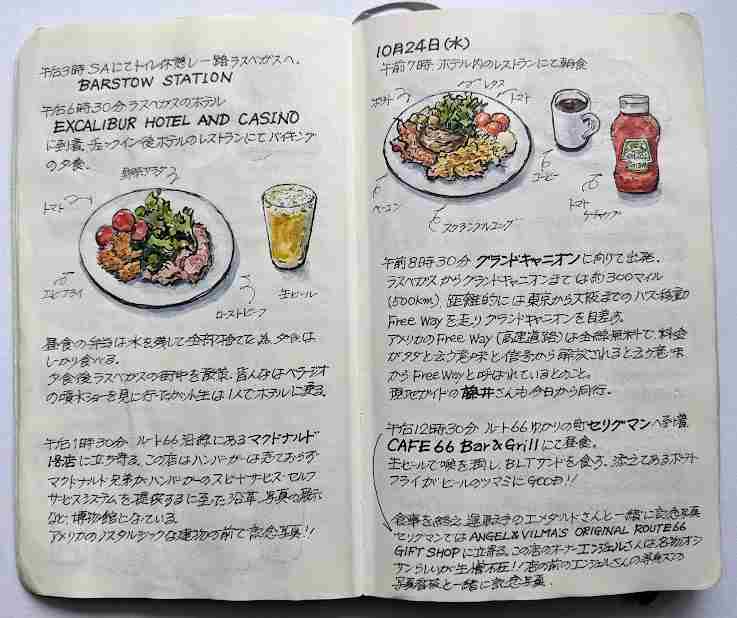 午后3時 SAにてトイレ休憩し一路ラスベガスへ。
BARSTOW STATION
午后6時30分 ラスベガスのホテル
EXCALIBUR HOTEL AND CASINO
に到着、チェックイン後ホテルのレストランにてバイキング
の夕食。
野菜サラダ
トマト
エビフライ
ローストビーフ
生ビール
昼食の弁当は水を残して全部捨てた為、夕食は
しっかり食べる。
夕食後ラスベガスの街中を散策、皆んなはベラジオ
の噴水ショーを見に行ったが小生は1人でホテルに戻る。
午后1時30分 ルート66沿線にあるマクドナルド
1号店に立ち寄る。この店はハンバーガーは売ておらず
マクドナルド兄弟がハンバーガーのスピードサービス・セルフ
サービスシステムを提供するに至った沿革、写真の展示
など、博物館となっている。
アメリカのノスタルジックな建物の前で記念写真!!
10月24日(水)
午前7時 ホテル内のレストランにて朝食
ポテト
レタス
トマト
ベーコン
スクランブルエッグ
コーヒー
トマト
ケチャップ
午前8時30分 グランドキャニオンに向けて出発。
ラスベガスからグランドキャニオンまでは約300マイル
(500km)、距離的には東京から大阪までのバス移動
Free Wayを走りグランドキャニオンを目差す。
アメリカのFree Way(高速道路)は全線無料で、料金
がタダと云う意味と信号から解放されると云う意味
からFree Wayと呼ばれているとのこと。
現地ガイドの藤井さんも今日から同行。
午后12時30分 ルート66ゆかりの町セリグマンへ到着
CAFE 66 Bar&Grillにて昼食。
生ビールで喉を潤し、BLTサンドを食う。添えてあるポテト
フライがビールのツマミにGOOD!!
食事を終え、運転手のエメダルドさんと一緒に記念写真
セリグマンではANGEL&VILMA'S ORIGINAL ROUTE66
GIFT SHOPに立寄る。この店のオーナーエンジェルさんは名物オジ
サンらしいが生憎不在!!店の前のエンジェルさんの等身大の
写真看板と一緒に記念写真。